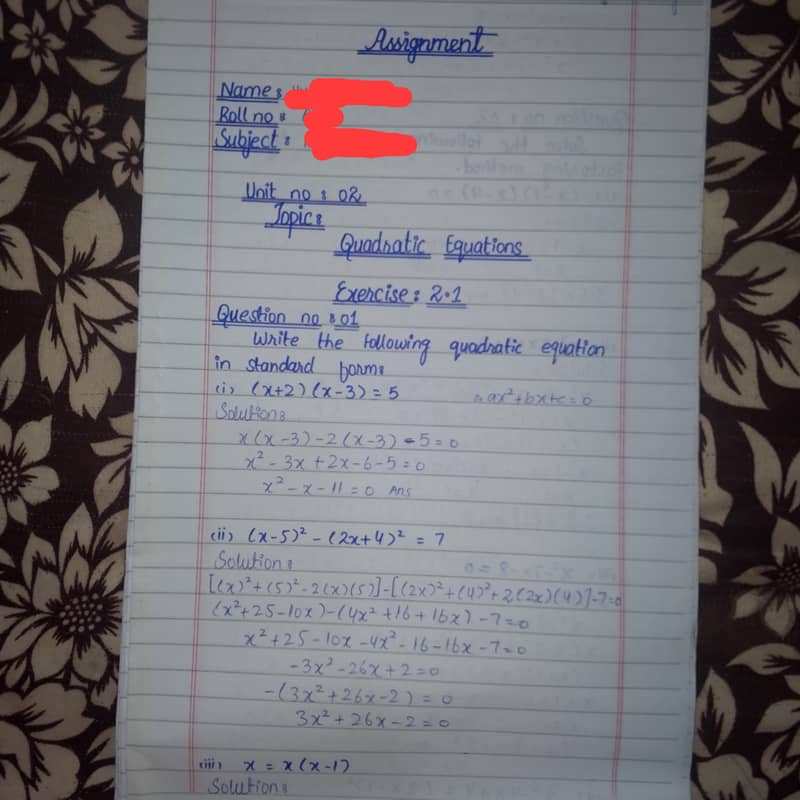 Assignment
Name :
Roll no :
Subject :
Unit no : 02
Topic :
Quadratic Equations
Exercise : 2.1
Question no : 01
Write the following quadratic equation
in standard form:
(i) (x+2) (x-3) = 5 ∴ ax²+bx+c=0
Solution :
x(x-3)-2(x-3)-5=0
x²-3x+2x-6-5=0
x²-x-11=0 Ans
(ii) (x-5)² - (2x+4)² = 7
Solution :
[(x)²+(5)²-2(x)(5)]-[(2x)²+(4)²+2(2x)(4)]-7=0
(x²+25-10x)-(4x²+16+16x)-7=0
x²+25-10x-4x²-16-16x-7=0
-3x²-26x+2=0
-(3x²+26x-2)=0
3x²+26x-2=0
(iii) x = x(x-1)
Solution :